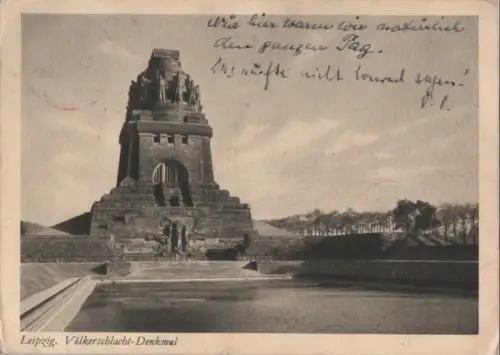 Wie hier waren wir natürlich
den ganzen Tag.
Das dürfte nicht Conrad sagen!
Leipzig. Völkerschlacht-Denkmal